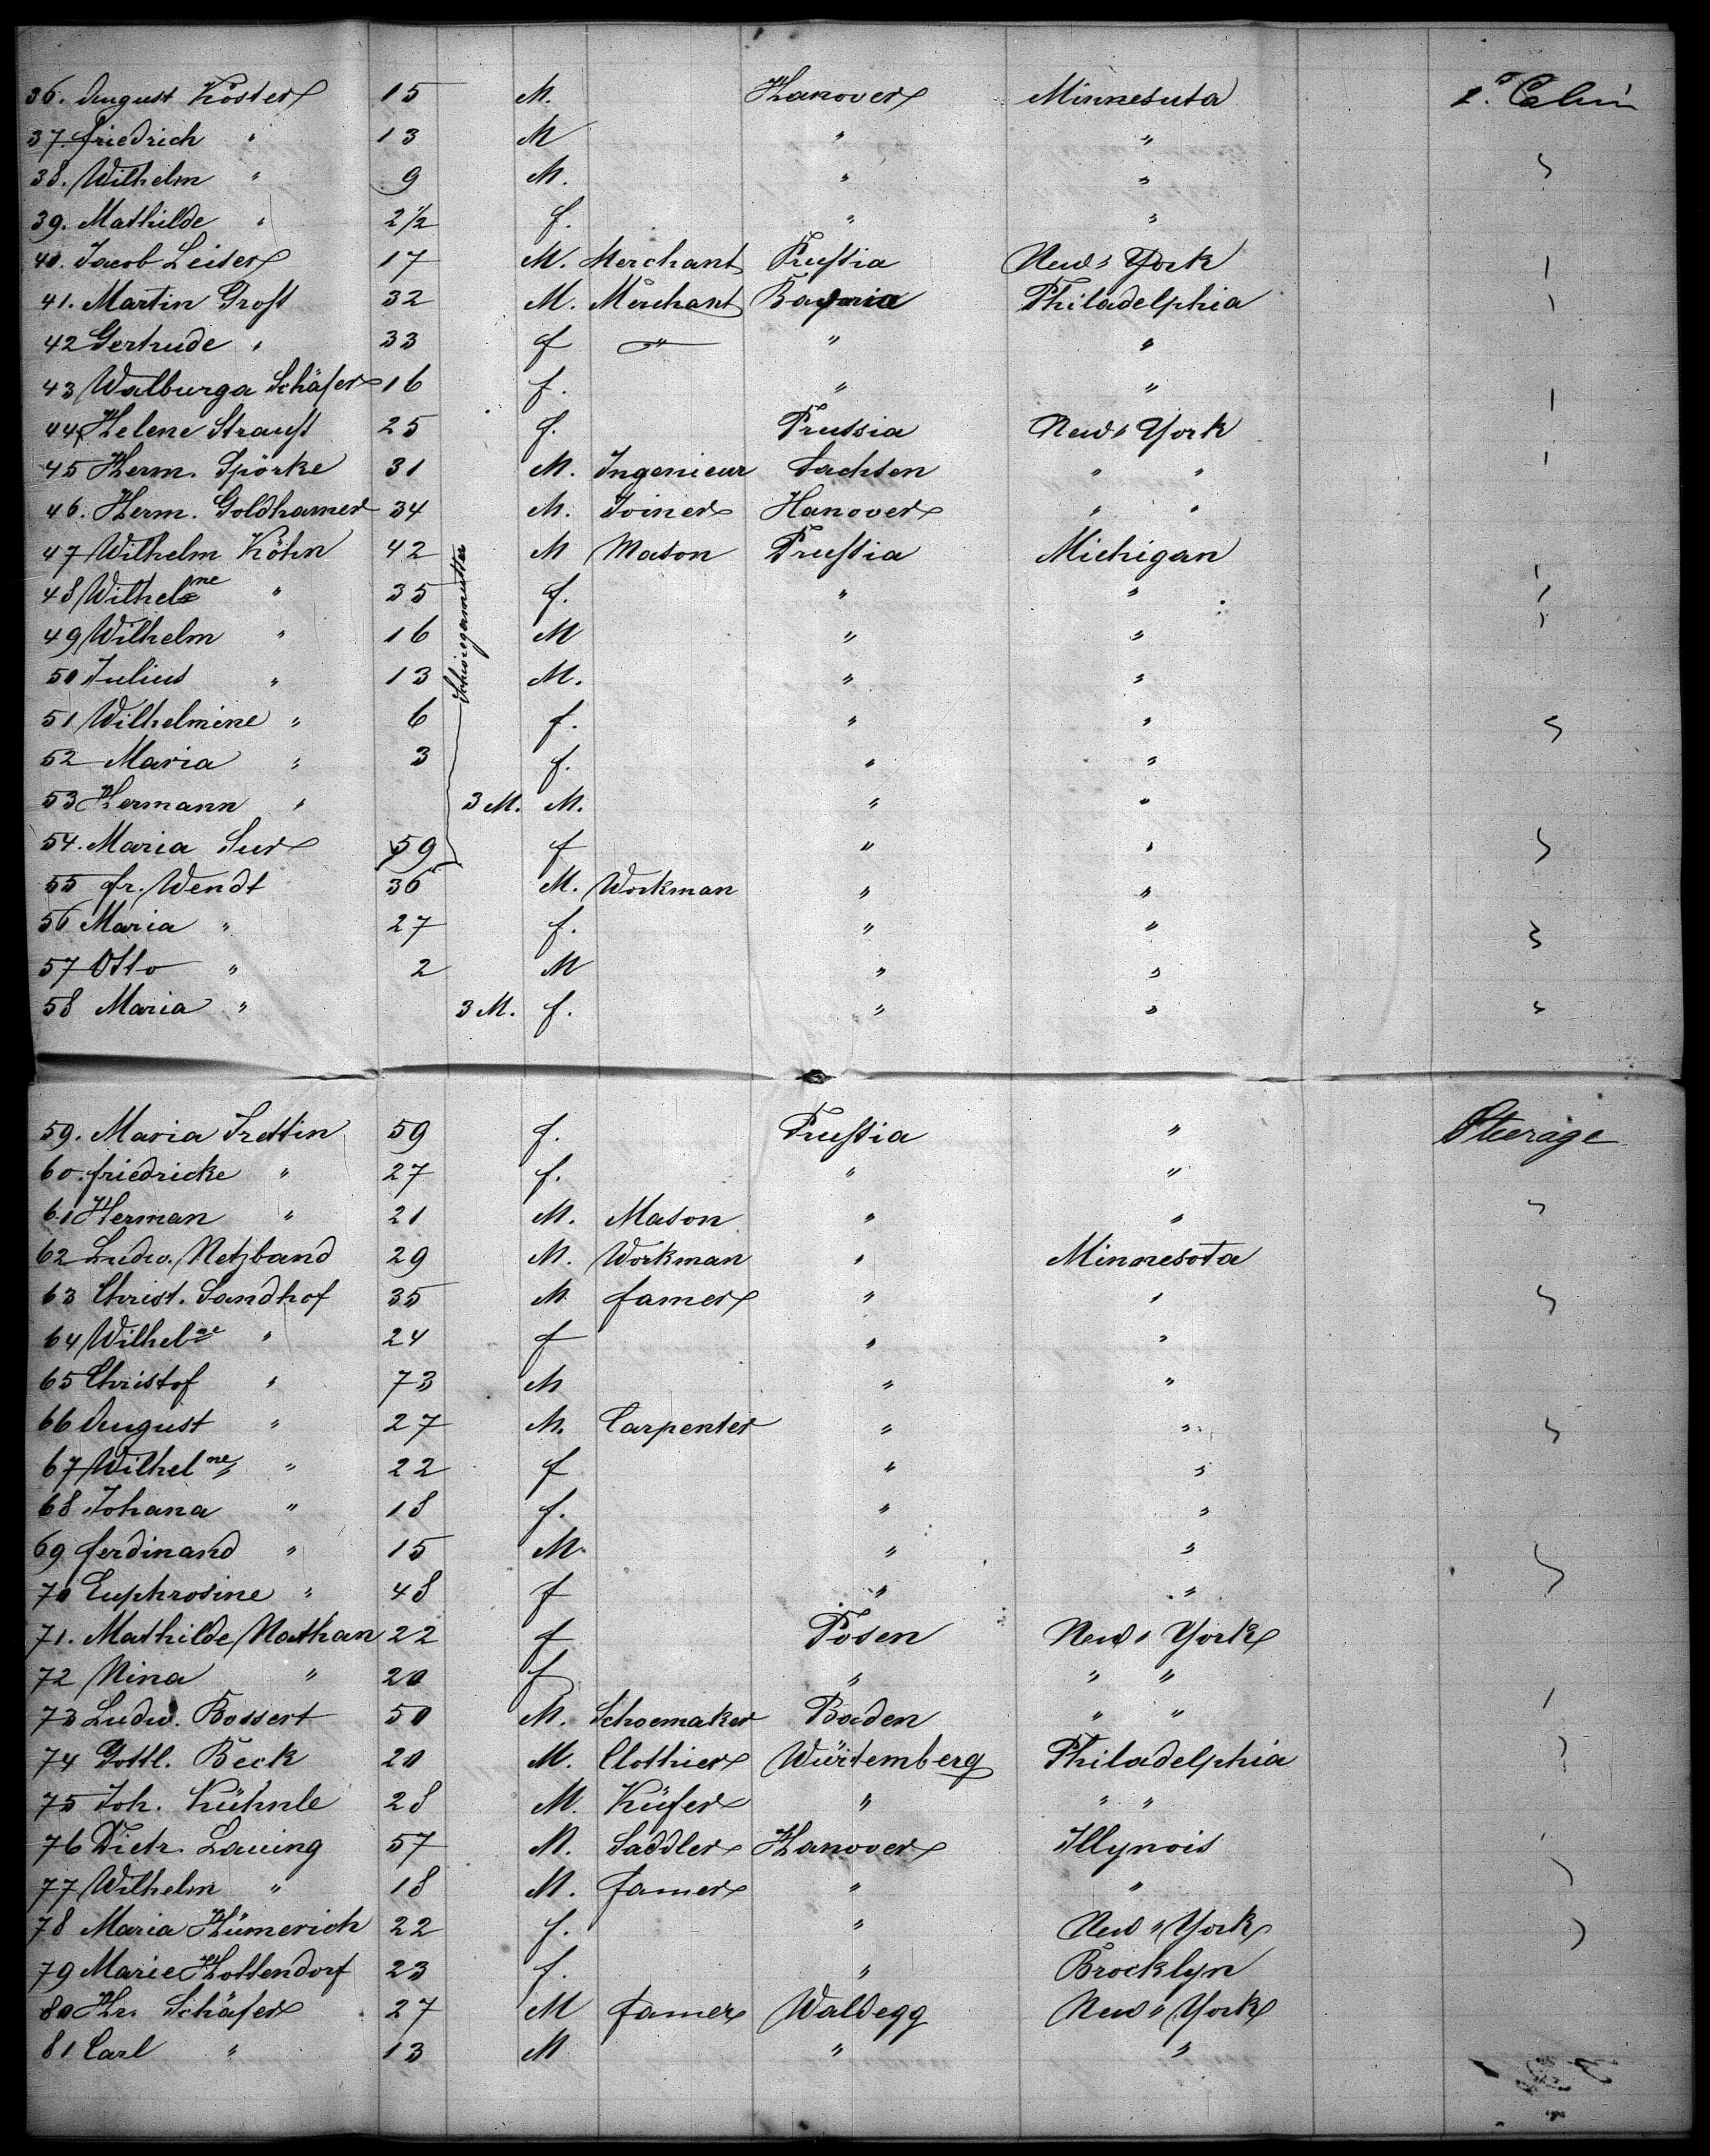 36. August Köster 15 M. Hanover Minnesuta 2d. Cabin
37. Friedrich " 13 M " "
38. Wilhelm " 9 M. " "
39. Mathilde " 2½ f. " "
40. Jacob Leiser 17 M. Merchant Prussia New York
41. Martin Gross 32 M. Merchant Bavaria Philadelphia
42 Gertrude " 33 f " " "
43 Walburga Schäfer 16 f. " "
44 Helene Strauss 25 f. Prussia New York
45 Herm. Spörke 31 M. Ingenieur Sachsen " "
46. Herm. Goldhamer 34 M. Joiner Hanover " "
47 Wilhelm Köhn 42 M Mason Prussia Michigan
48 Wilhelne " 35 f. " "
49 Wilhelm " 16 M " "
50 Julius " 13 M. " "
51 Wilhelmine " 6 f. " "
52 Maria " 3 f. " "
53 Hermann " 3 M. M. " "
54. Maria Sur 59 Schwiegermutter f " "
55 Fr. Wendt 36 M. Workman " "
56 Maria " 27 f. " "
57 Otto " 2 M " "
58 Maria " 3 M. f. " "
59. Maria Trettin 59 f. Prussia " Steerage
60. Friedricke " 27 f. " "
61 Herman " 21 M. Mason " "
62 Ludw. Netzband 29 M. Workman " Minnesota
63 Christ. Sandhof 35 M famer " "
64 Wilhelne " 24 f " "
65 Christof " 73 M " "
66 August " 27 M. Carpenter " "
67 Wilhelne " 22 f " "
68 Johana " 18 f. " "
69 Ferdinand " 15 M. " "
70 Euphrosine " 48 f " "
71. Mathilde Nathan 22 f Posen New York
72 Nina " 20 f " " "
73 Ludw. Bossert 50 M. Schoemaker Baden " "
74 Gottl. Beck 20 M. Clothier Würtemberg Philadelphia
75 Joh. Kühnle 28 M. Küfer " " "
76 Dietr. Lauing 57 M. Saddler Hanover Illynois
77 Wilhelm " 18 M. famer " "
78 Maria Hümerich 22 f. " New York
79 Marie Hottendorf 23 f. " Brocklyn
80 Hr. Schäfer 27 M famer Waldegg New York
81 Carl " 13 M " "